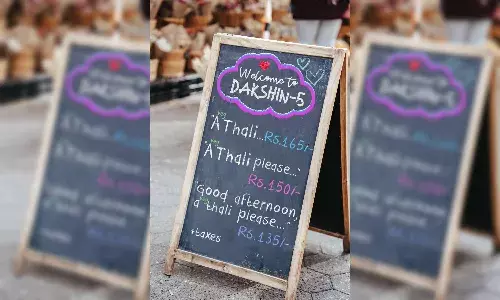 Welcome to
DAKSHIN-5
"A Thali... Rs.165/-
"A Thali please..."
Rs.150/-
"good afternoon,
a thali please..."
Rs.135/-
+taxes